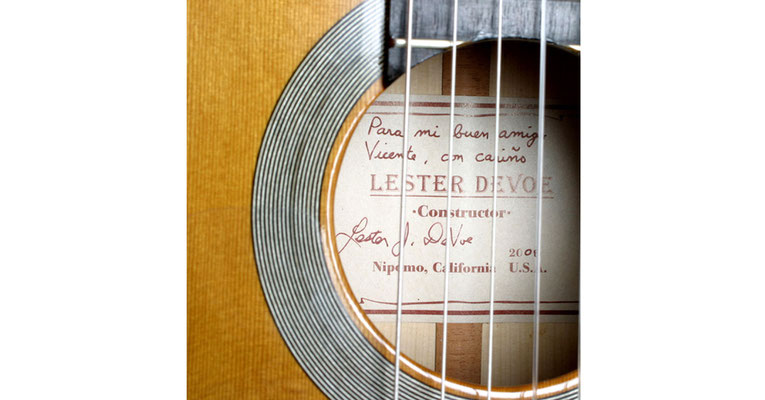 Para mi buen amigo
Vicente, con cariño
LESTER DEVOE
·Constructor·
Lester J. DeVoe
Nipomo, California U.S.A.